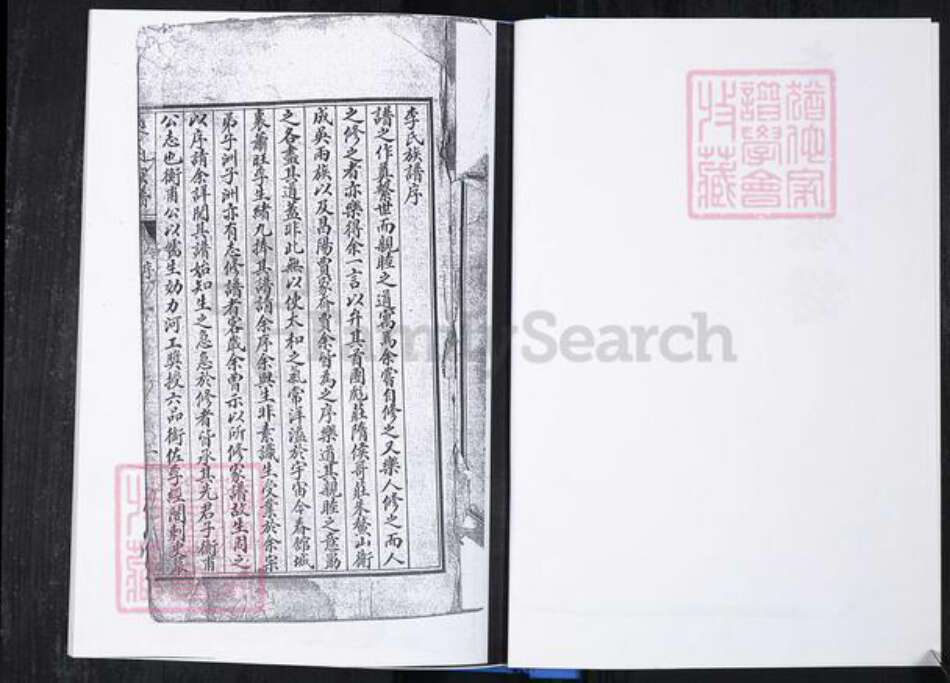 李氏族譜序
譜之作真繫世而親睦之道寓焉余嘗自修之又樂人修之而人
之修之者亦樂得余一言以弁其首團彪莊隋侯哥莊朱黃山衛
成吳兩族以及昌陽賈家夼賈余皆為之序樂道其親睦之意勗
之各盡其道蓋非此無以使太和之氣常洋溢於宇宙今春館城
裏蕭旺李生緒九捧其譜請余序余與生非素識生受業於余宗
弟子洲子洲亦有志修譜者客歲余曾示以所修家譜故生因之
以序請余詳閱其譜始知生之急急於修者皆承其先君子衡甫
公志也衡甫公以鷲生効力河工獎授六品銜佐
序
猶他家
譜學會
收藏
FamilySearch